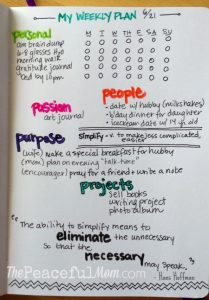 MY WEEKLY PLAN 6/21
personal M T W TH F SA SU
am brain dump
6-8 glasses H2O
morning walk
gratitude journal
bed by 10pm
people
passion
art journal
- date w/ hubby (milkshakes)
- b'day dinner for daughter
- icecream date w/ 14 yr old
purpose
Simplify - v. to make less complicated, easier
(wife) make a special breakfast for hubby
(mom) plan on evening "talk-time"
(encourager) pray for a friend + write a note
projects
sell books
writing project
photo album
"The ability to simplify means to
eliminate the unnecessary
so that the
necessary
may speak."
Hans Hoffman
ThePeacefulMom.com